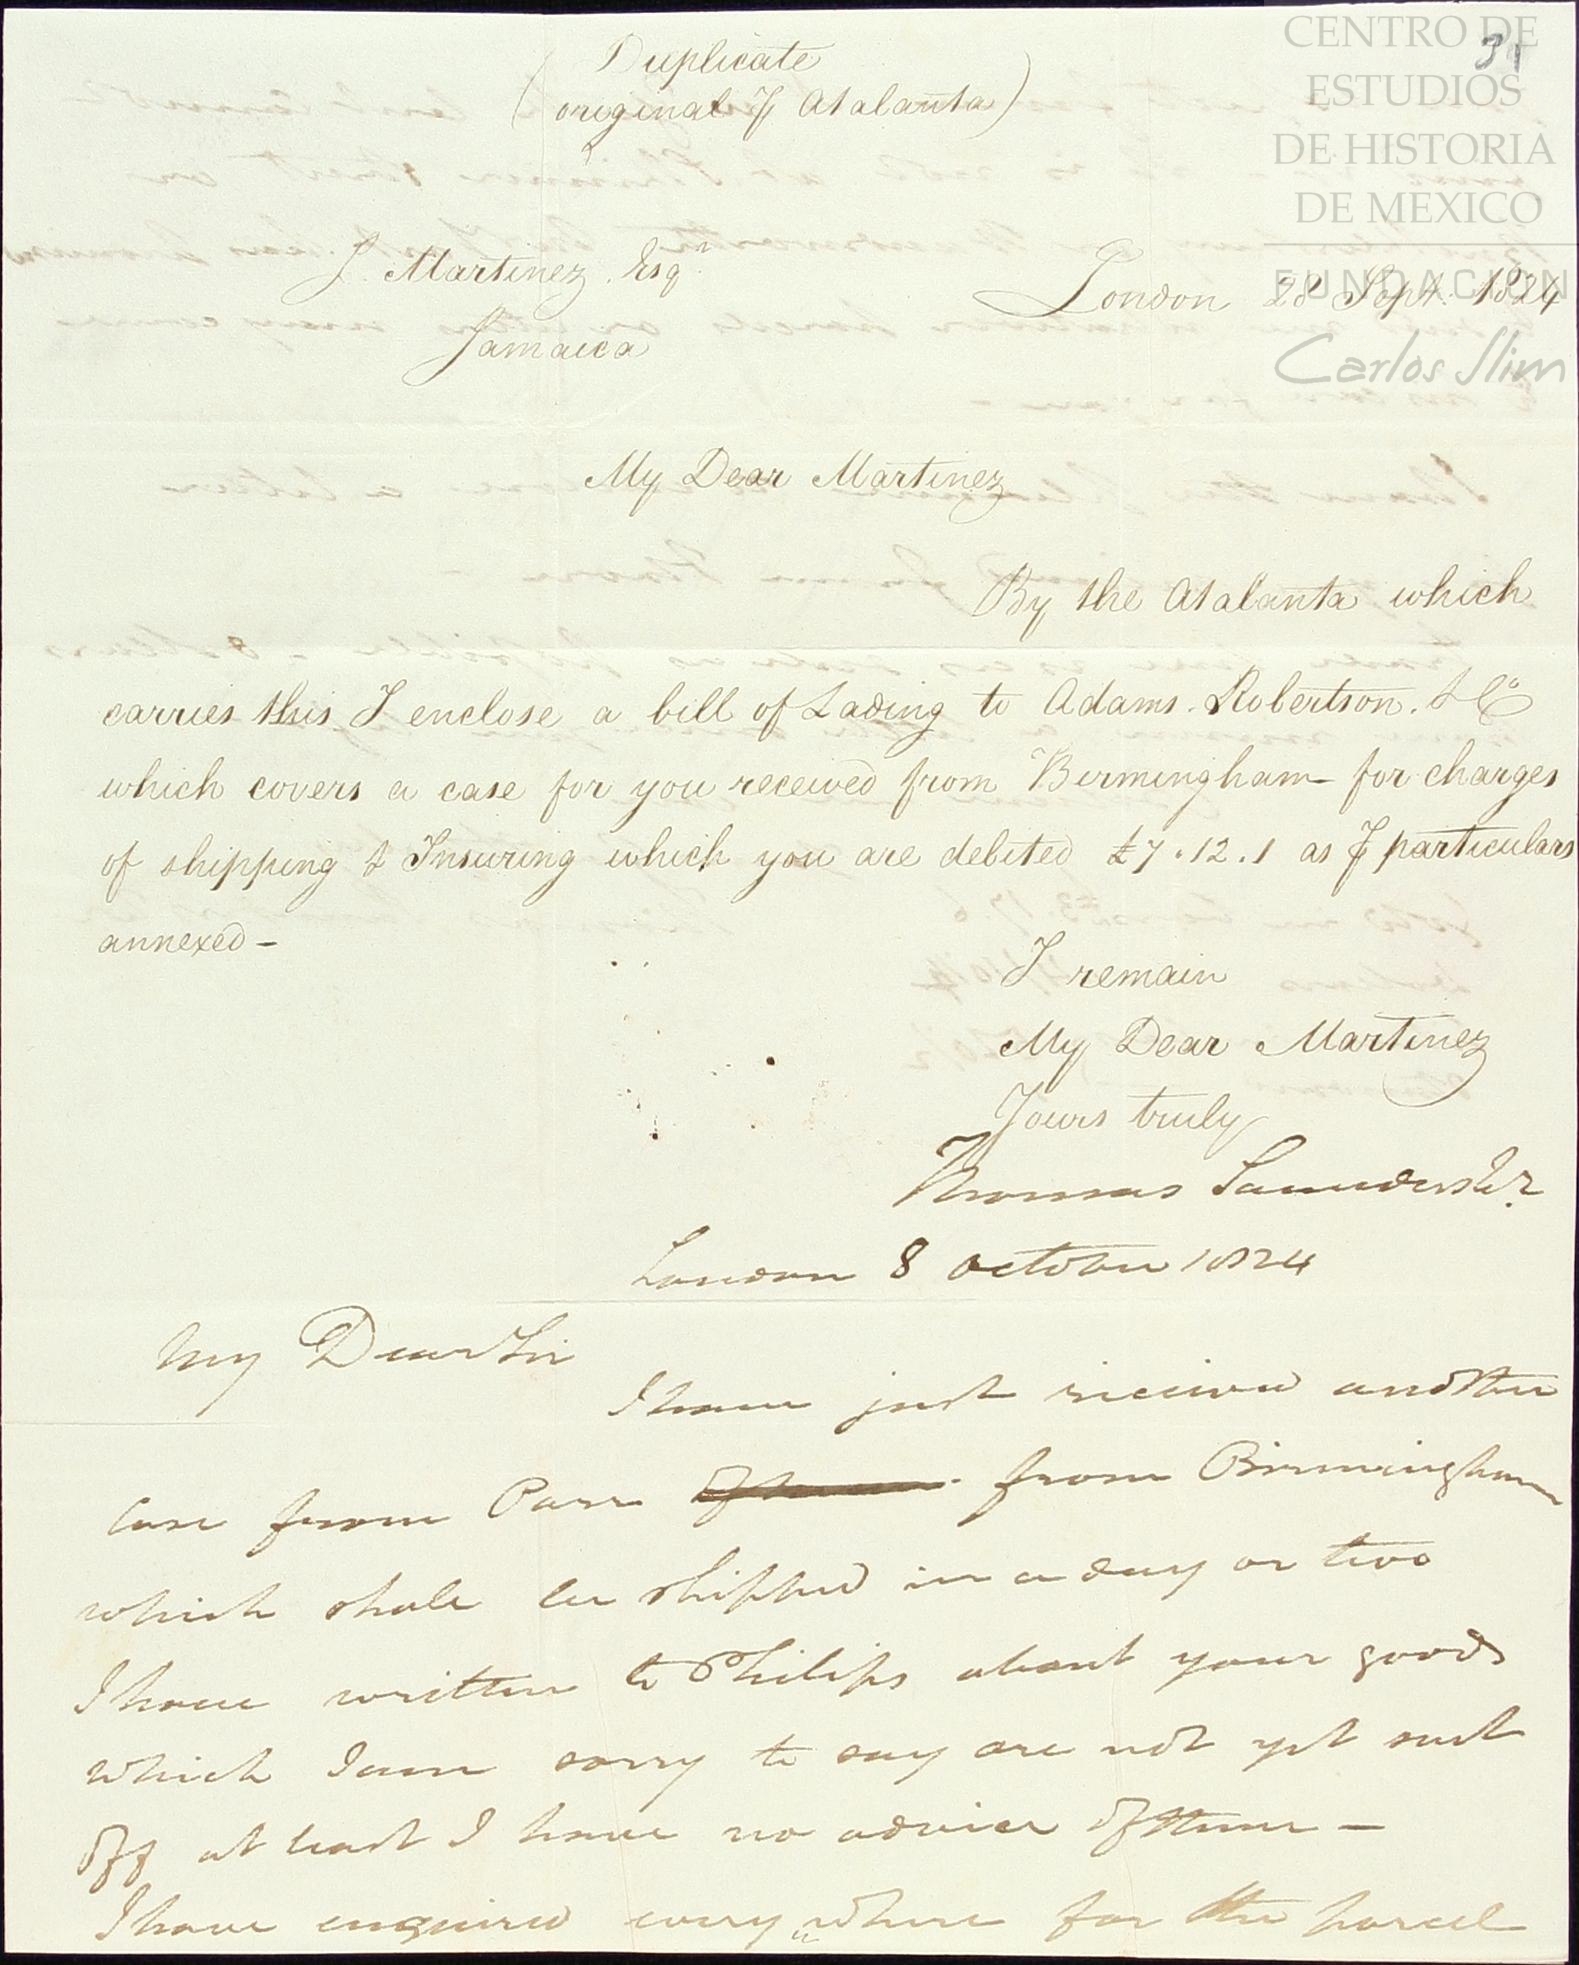 CENTRO DE
ESTUDIOS
DE HISTORIA
DE MEXICO
FUNDACION
Carlos Slim
31
Duplicate
(original ⅌ Atalanta)
J. Martinez Esqr.
Jamaica
London 28 Sept: 1824
My Dear Martinez
By the Atalanta which
carries this I enclose a bill of Lading to Adams. Robertson. & Co
which covers a case for you received from Birmingham - for charges
of shipping & Insuring which you are debited £7.12.1 as ⅌ particulars
annexed -
I remain
My Dear Martinez
Yours truly
Thomas Saunders Jr.
London 8 October 1824
My Dear Sir
I have just received another
Case from Parr from Birmingham
which shall be shipped in a day or two
I have written to Philips about your goods
which I am sorry to say are not yet sent
off at least I have no advice of them -
I have enquired every where for the parcel